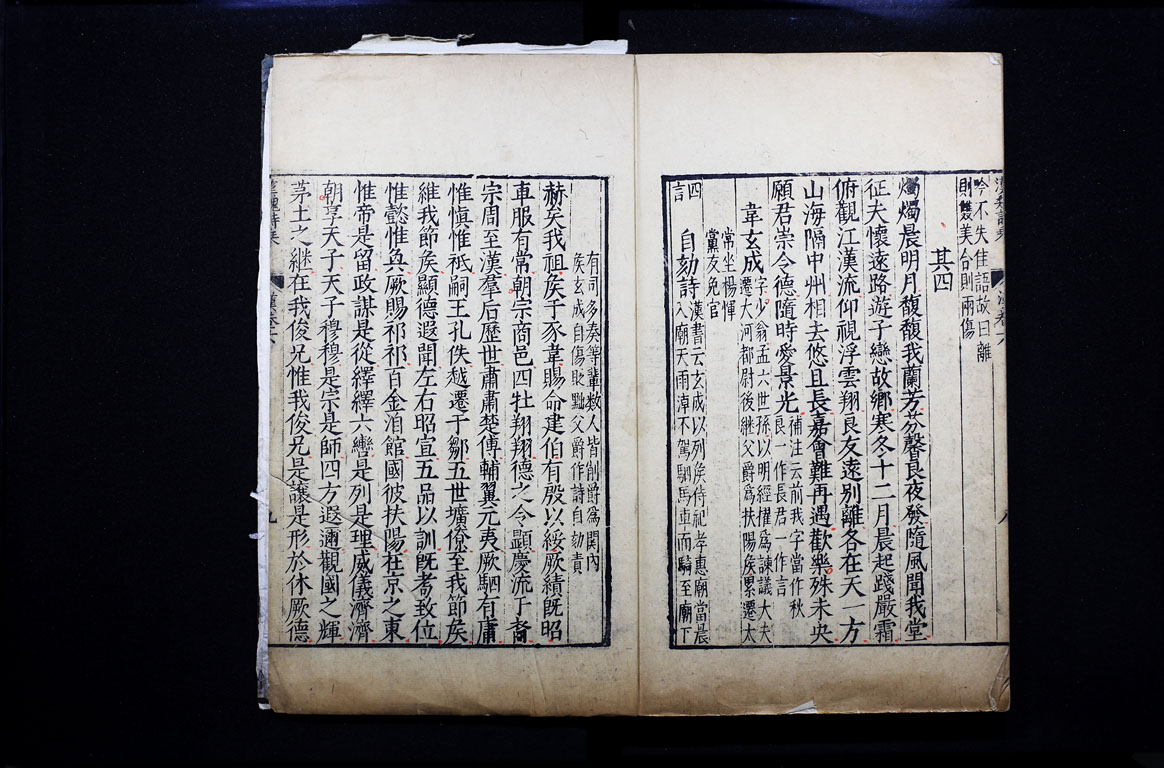 吟不失佳語故曰離
則雙美合則兩傷
其四
燭燭晨明月馥馥我蘭芳芬馨良夜發隨風聞我堂
征夫懷遠路遊子戀故鄉寒冬十二月晨起踐嚴霜
俯觀江漢流仰視浮雲翔良友遠別離各在天一方
山海隔中州相去悠且長嘉會難再遇歡樂殊未央
願君崇令德隨時愛景光
補注云前我字當作秋
良一作長君一作言
韋玄成
字少翁孟六世孫以明經擢為諫議大夫
遷大河都尉後繼父爵為扶陽矦累遷太
常坐楊惲
黨友免官
四言
自劾詩
漢書云玄成以列矦侍祀孝惠廟當晨
入廟天雨淖不駕駟馬車而騎至廟下
有司多奏等輩數人皆削爵為關內
矦玄成自傷貶黜父爵作詩自劾責
赫矣我祖矦于豕韋賜命建伯有殷以綏厥績旣昭
車服有常朝宗商邑四牡翔翔德之令顯慶流于裔
宗周至漢羣后歷世肅肅楚傅輔翼元夷厥駟有庸
惟愼惟祗嗣王孔佚越遷于鄒五世壙僚至我節矦
維我節矦顯德遐聞左右昭宣五品以訓旣耇致位
惟懿惟奐厥賜祁祁百金洎館國彼扶陽在京之東
惟帝是留政謀是從繹繹六轡是列是理威儀濟濟
朝享天子天子穆穆是宗是師四方遐邇觀國之輝
茅土之繼在我俊兄惟我俊兄是讓是形於休厥德
九